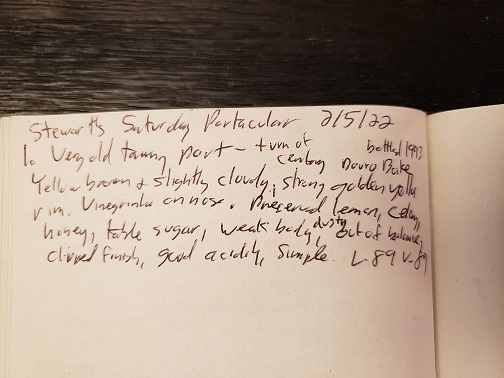 Stewart's Saturday Portacular 2/5/22
1. Very old tawny port - turn of century bottled 1993 Douro Bake
Yellow brown & slightly cloudy, strong golden yellow
rim. Vinegrinha on nose. Preserved lemon, cedar,
honey, table sugar, weak body, dusty, out of balance,
clipped finish, good acidity, simple. L-89 V-89